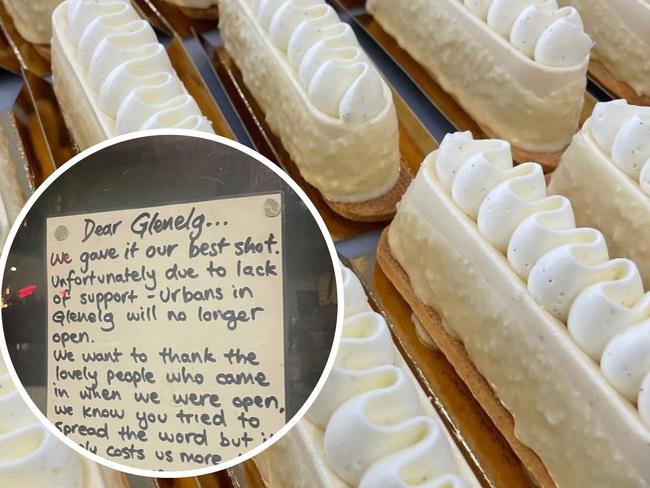 Dear Glenelg...
We gave it our best shot.
Unfortunately due to lack
of support - Urbans in
Glenelg will no longer
open.
We want to thank the
lovely people who came
in when we were open,
we know you tried to
spread the word but
costs us more